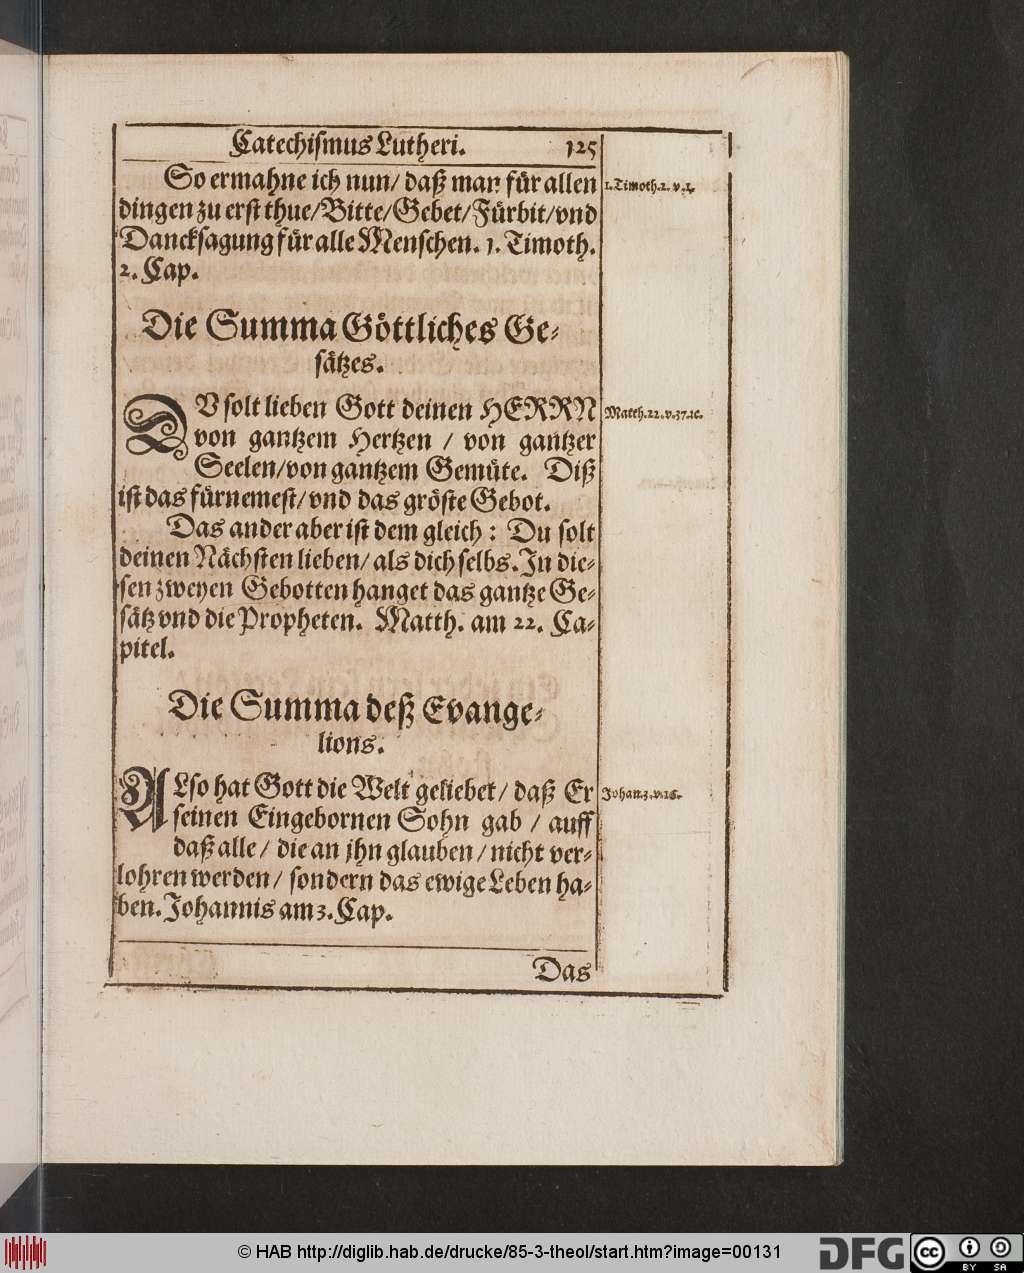 Catechiſmus Lutheri. 125
So ermahne ich nun/ daß man für allen
dingen zu erſt thue/Bitte/Gebet/Fürbit/vnd
Danckſagung für alle Menſchen. 1. Timoth.
2. Cap.
1. Timoth. 2. v. 1.
Die Summa Göttliches Ge-
ſätzes.
DV ſolt lieben Gott deinen HERRN
von gantzem Hertzen / von gantzer
Seelen/von gantzem Gemüte. Diß
iſt das fürnemeſt/vnd das gröſte Gebot.
Matth. 22. v. 37. ꝛc.
Das ander aber iſt dem gleich : Du ſolt
deinen Nächſten lieben/ als dich ſelbs. In die-
ſen zweyen Gebotten hanget das gantze Ge-
ſätz vnd die Propheten. Matth. am 22. Ca-
pitel.
Die Summa deß Evange-
lions.
ALſo hat Gott die Welt geliebet/ daß Er
ſeinen Eingebornen Sohn gab / auff
daß alle/ die an jhn glauben/ nicht ver-
lohren werden/ ſondern das ewige Leben ha-
ben. Johannis am 3. Cap.
Johan. 3. v. 16.
Das
© HAB http://diglib.hab.de/drucke/85-3-theol/start.htm?image=00131
DFG
cc BY SA